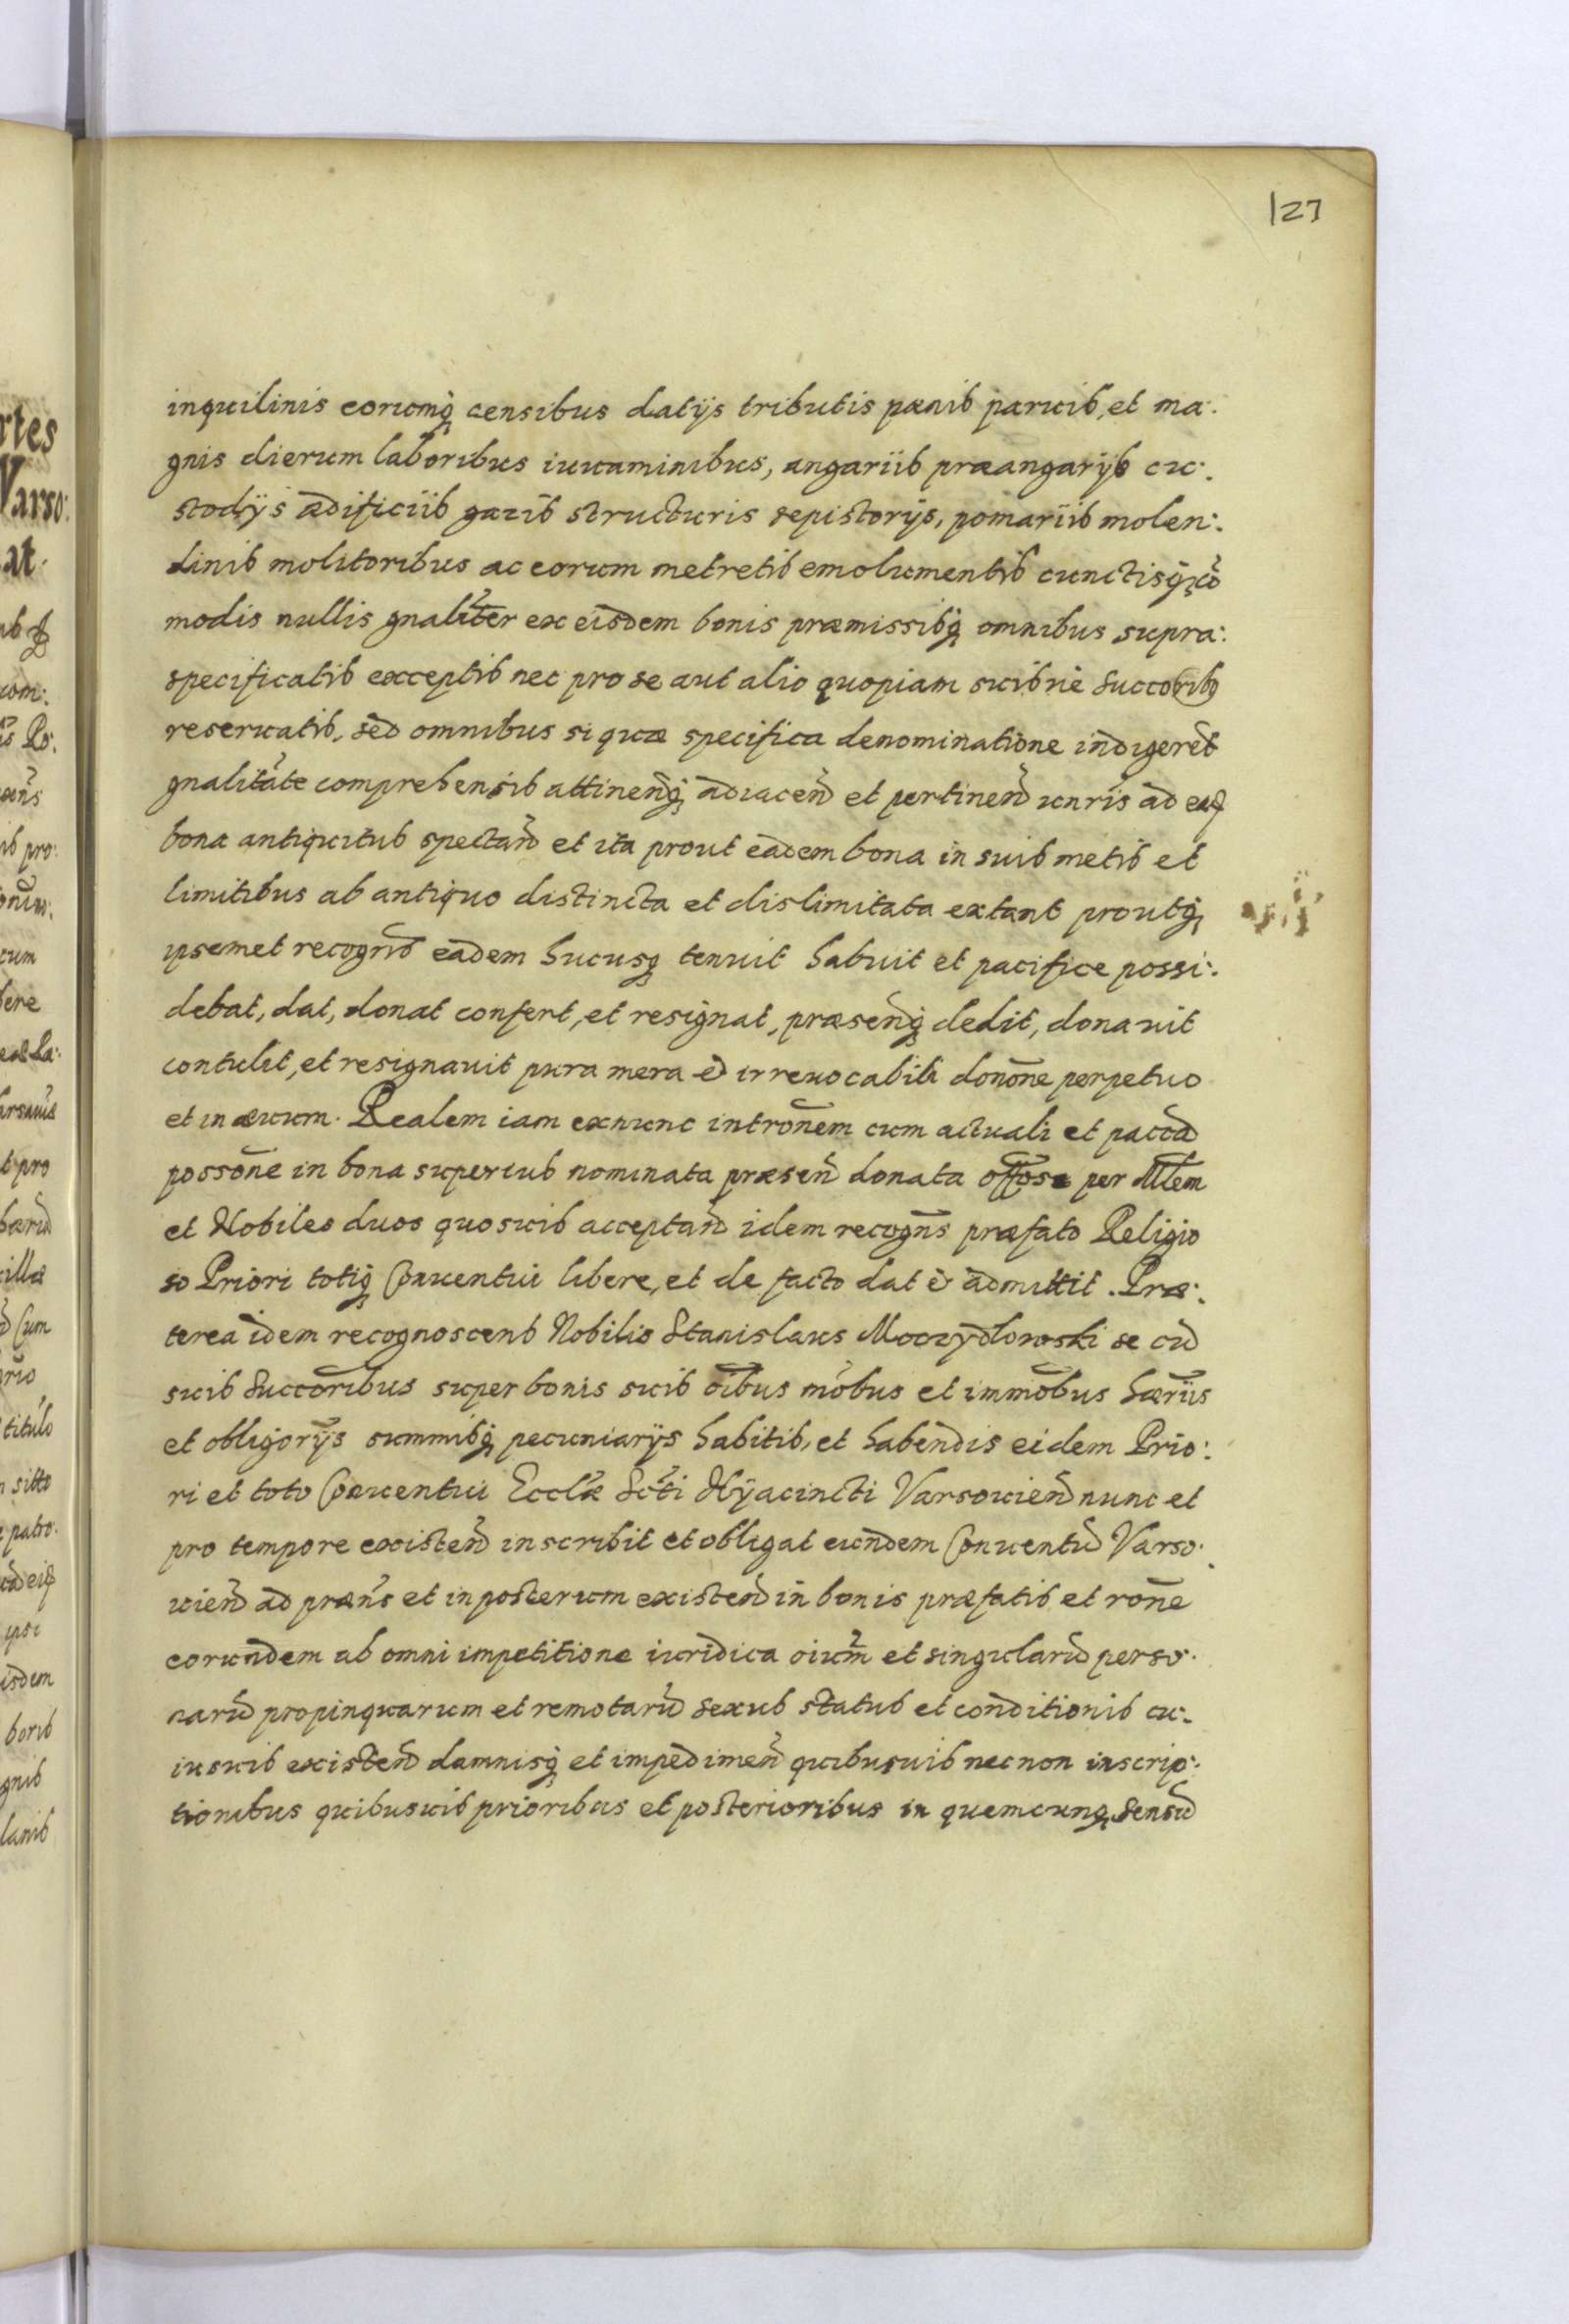 127
inquilinis eorumq̃ censibus datijs tributis pænis paruis, et ma:
gnis dierum laboribus iuuaminibus, angariis præangarijs cu:
stodijs ædificiis gazis structuris sepistorijs, pomariis molen:
dinis molitoribus ac eorum metretis emolumentis cunctisq̃ cō
modis nullis gnalĩter ex eisdem bonis præmissisq̃ omnibus supra:
specificatis exceptis nec pro se aut alio quopiam suisuè Succoribq
reseruatis, sed omnibus si quæ specifica denominatione indigerēt
gnalitãte comprehensis attinenq̃ adiaceñ et pertineñ iuris ad eaq
bona antiquitus spectañ et ita prout eadem bona in suis metis et
limitibus ab antiquo distincta et dislimitata extant proutq̃
ipsemet recogns̃ eadem hucusq̃ tenuit habuit et pacifice possi:
debat, dat, donat confert, et resignat, præsenq̃ dedit, donauit
contulit, et resignauit pura mera et irreuocabili donōne perpetuo
et in æuum. Realem iam exnunc intronēm cum actuali et paccã
possōne in bona superius nominata præseñ donata oppose per Mltem
et Nobiles duos quosuis acceptañ idem recogns̃ præfato Religio
so Priori totiq̃ Conuentui libere, et de facto dat et admittit. Præ:
terea idem recognoscens Nobilis Stanislaus Moczydlowski se cū
suis Succoribus super bonis suis oībus mobus et immobus hæriis
et obligorijs summisq̃ pecuniarijs habitis, et habendis eidem Prio:
ri et toto Conuentui Ecclæ Scti Hyacincti Varsouieñ nunc et
pro tempore existeñ inscribit et obligat eundem Conuentū Varso:
uieñ ad præns et in posterum existeñ in bonis præfatis et rōne
eorundem ab omni impetitione iuridica oium et singularū perso:
narū propinquarum et remotarū sexus status et conditionis cu:
iusuis existeñ damnisq̃ et impedimeñ quibusuis nec non inscrip:
tionibus quibusuis prioribus et posterioribus in quemcunq̃ sensū